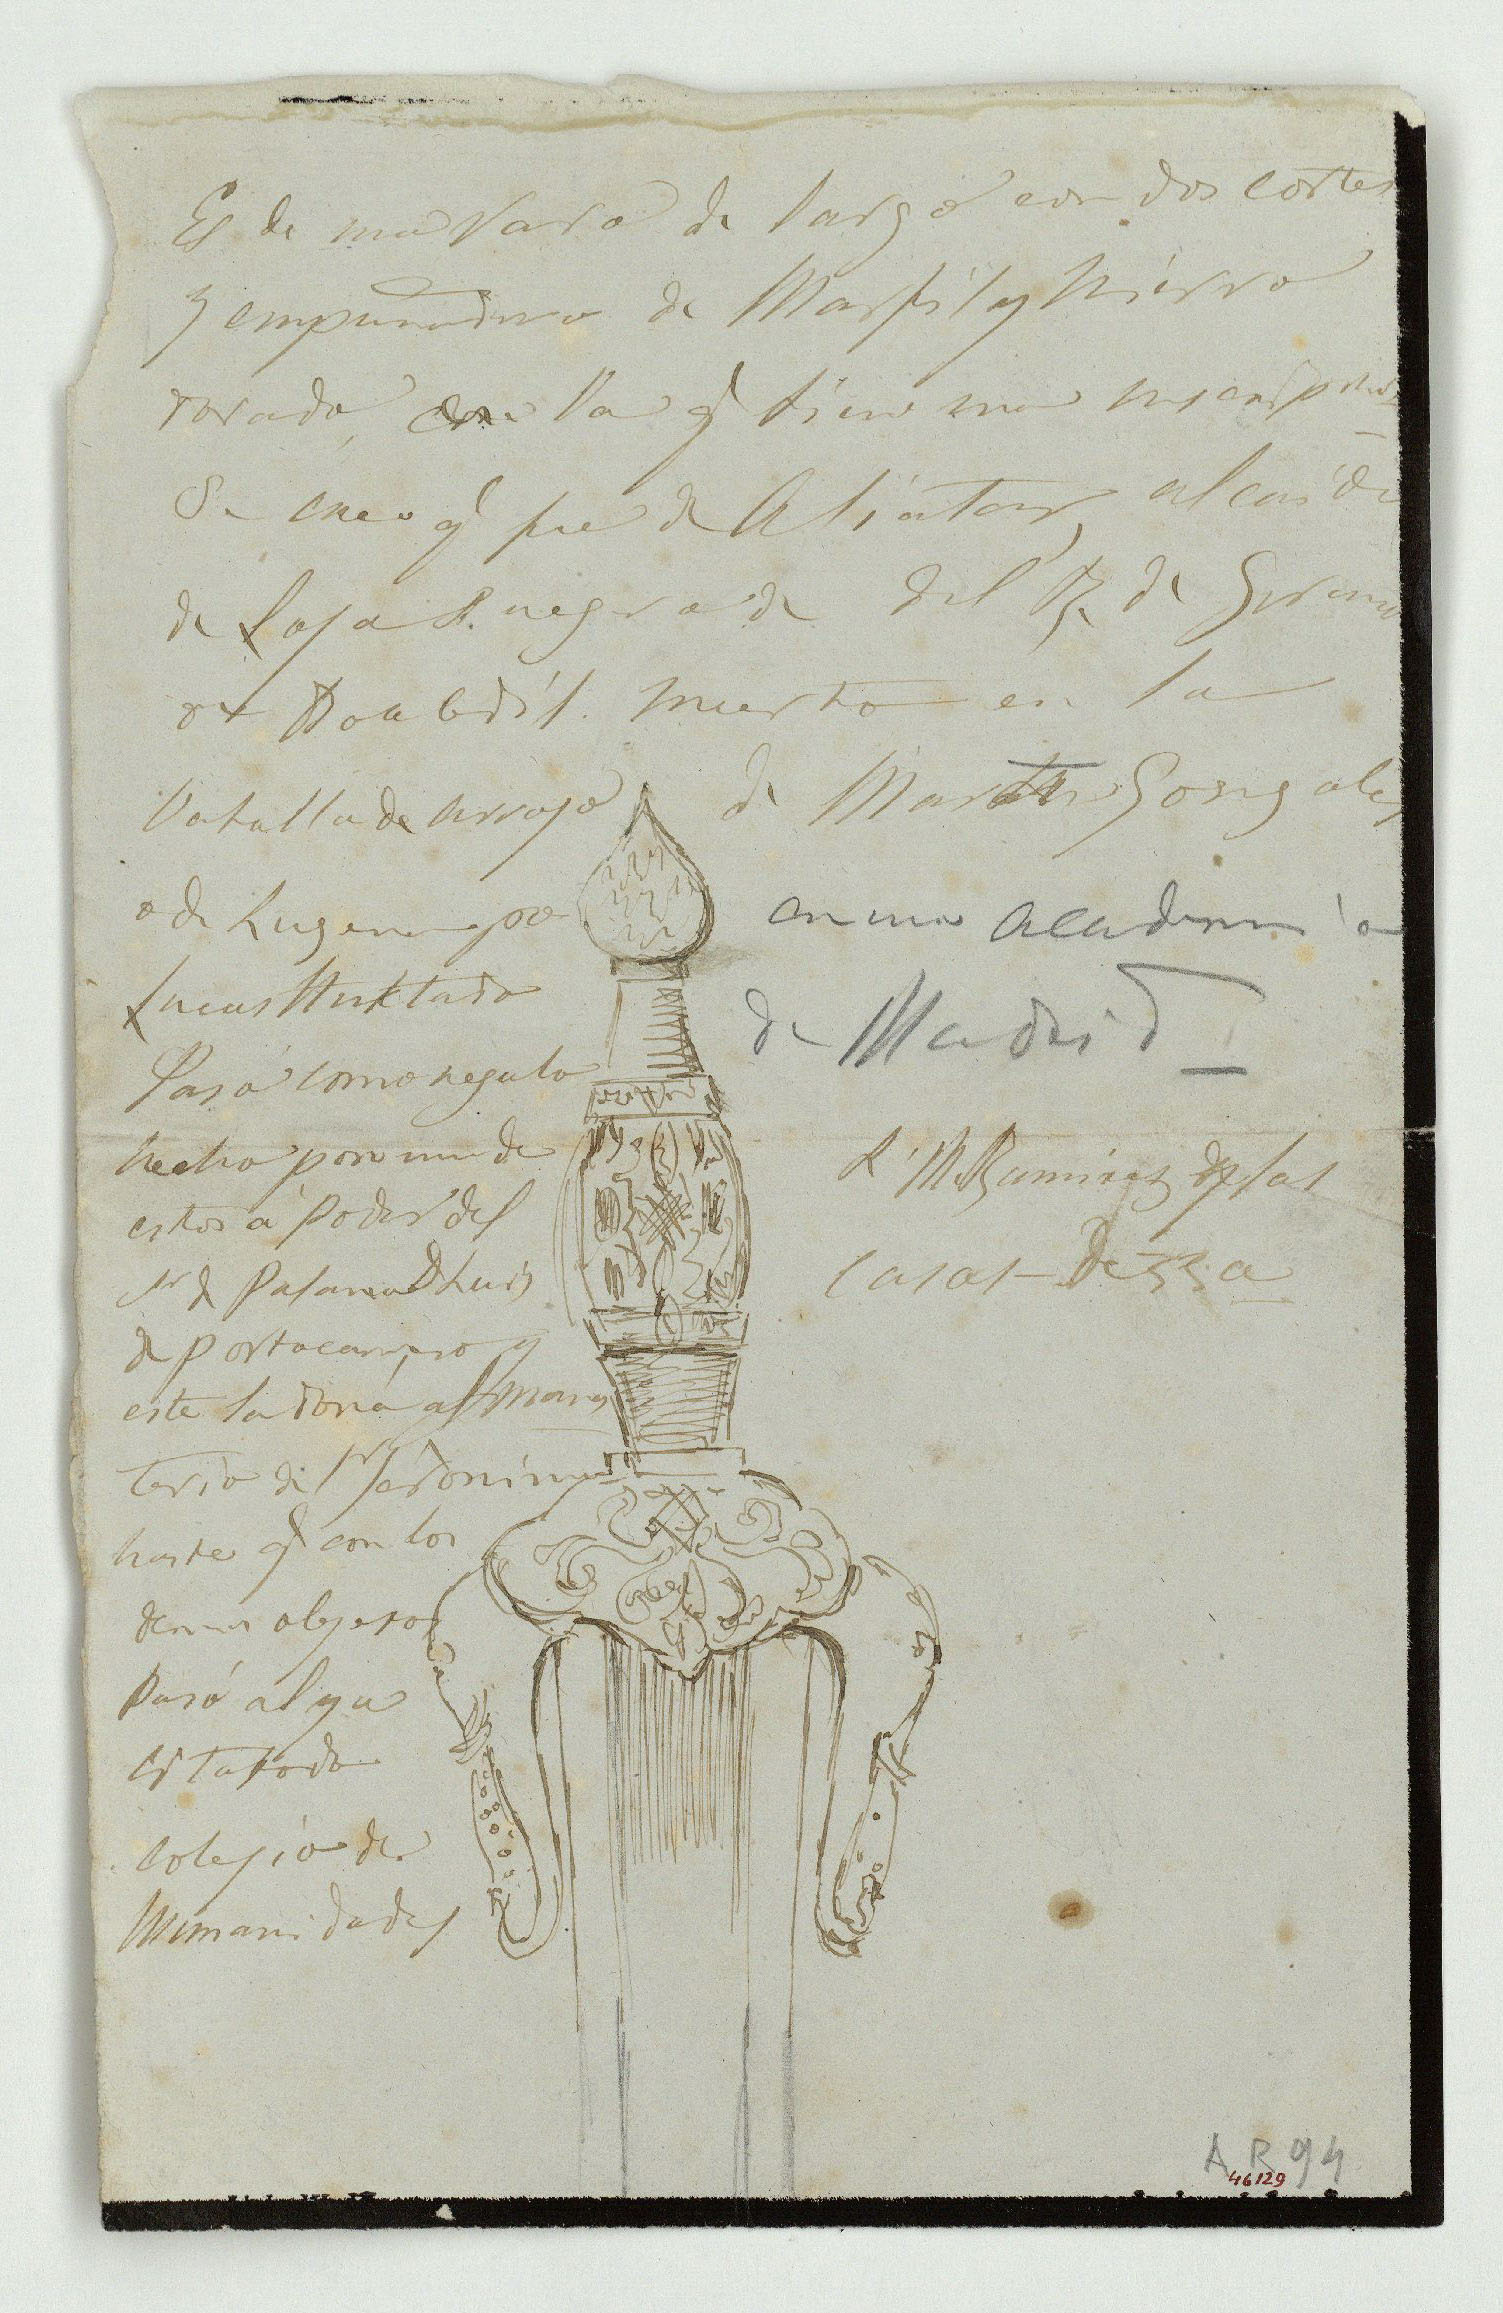 Es de una Vara de largo con dos cortes
y empuñadura de Marfil y hierro
dorado, en la q.e tiene una inscrip
Se cree q.e fue de Aliatar, alcaide
de Loja Suegro de del R. de Grana
Boabdil. muerto en la
batalla de arroyo de Martin Gonzalez
o de Lugena, por
Lucas Hurtado
Pasó como regalo
hecho por uno de
estos á poder del
Sr de Palma D Luis
de portocarrero y
este la donó al monas
terio de Sn Jeronimo
hasta q.e con los
demas objetos
Pasó al ya
citado
colegio de
Humanidades
en una academia
de Madrid
R. M. Ramirez de las
Casas-Deza
A R 94
46129